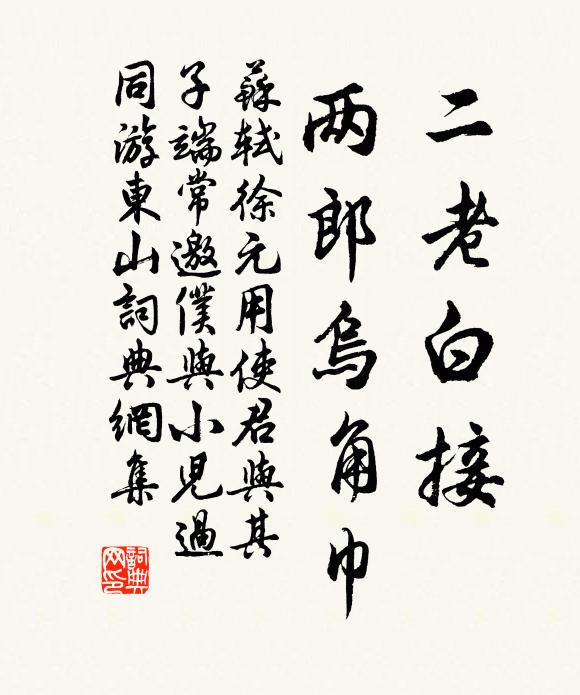 二老白接
两郎烏角巾
蘇軾徐元用使君與其
子端常邀僕與小兒過
同游東山詞典網集
詞典网印